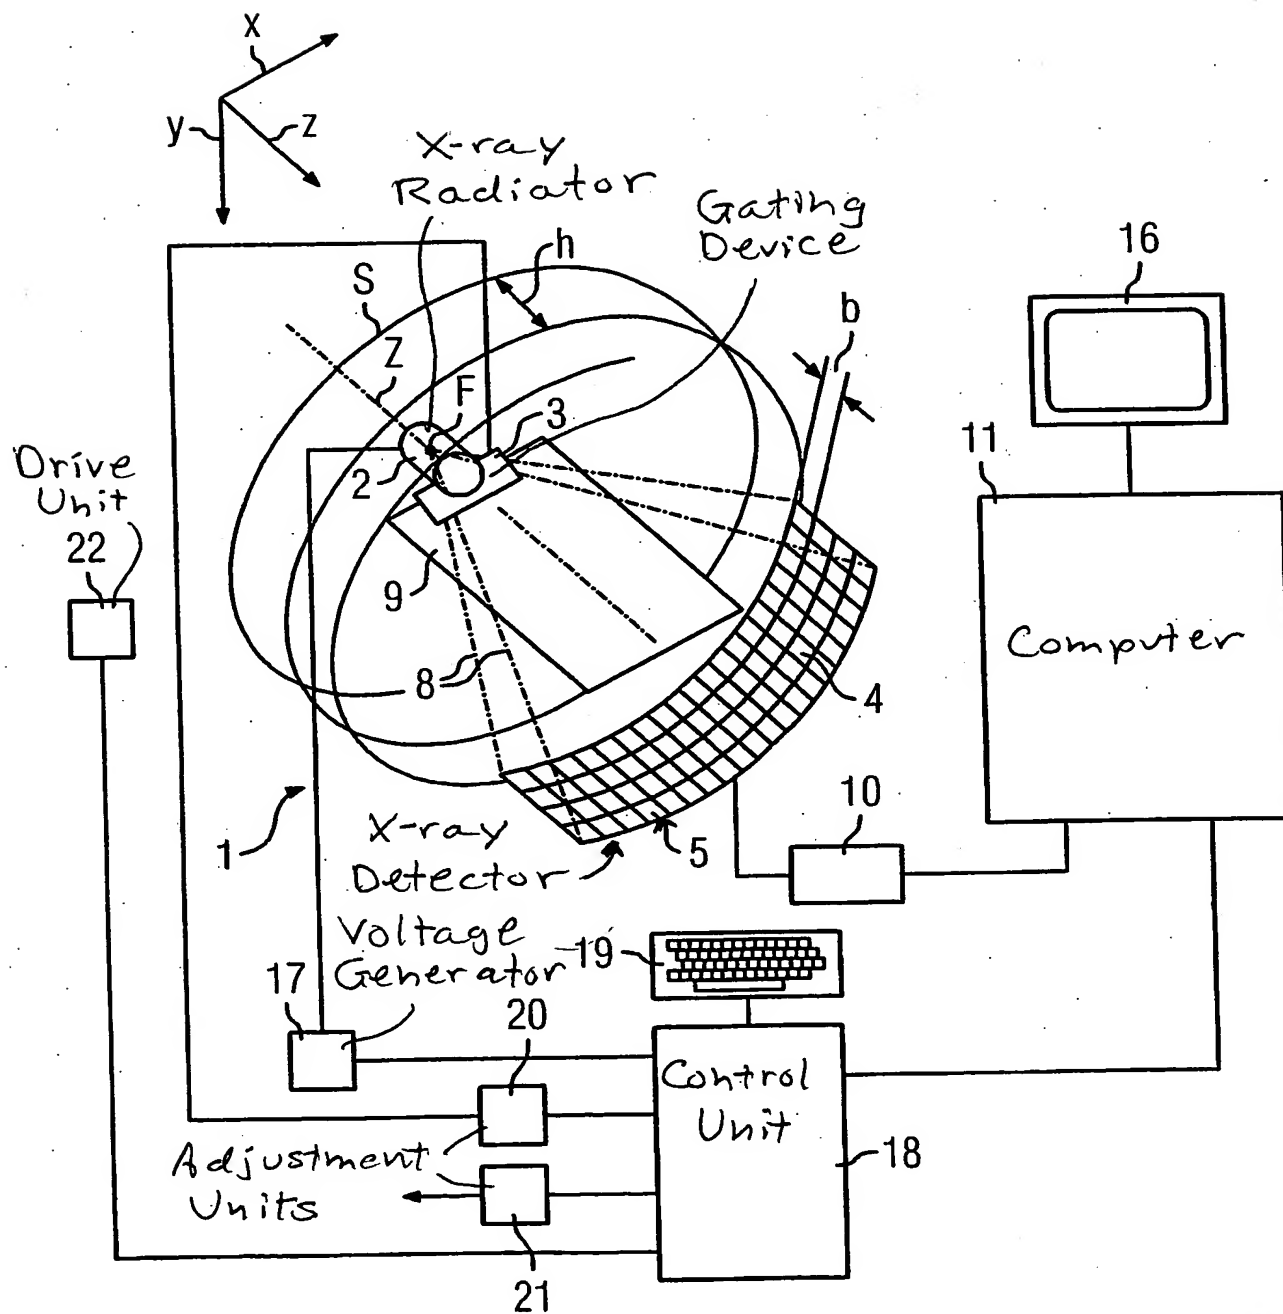 x
y
z
X-ray
Radiator
Gating
Device
h
S
16
b
Z
F
3
11
Drive
Unit
2
22
9
Computer
8
4
10
1
X-ray
Detector
5
Voltage
Generator
19
17
20
Control
Unit
18
Adjustment
Units
21